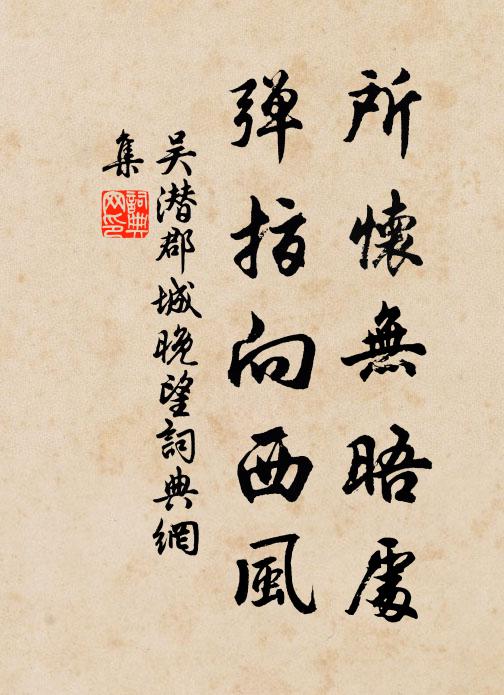 所懷無晤處
弹指向西風
吴潜郡城晚望詞典網
集
詞典网印